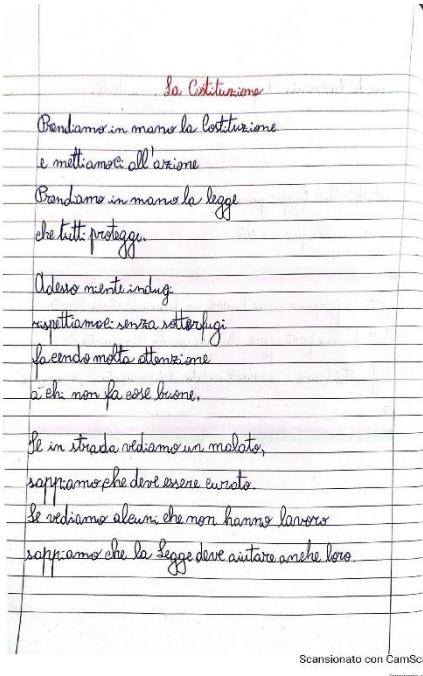 La Costituzione
Prendiamo in mano la Costituzione
e mettiamoci all'azione
Prendiamo in mano la legge
che tutti protegge.
Adesso niente indugi
rispettiamoci senza sotterfugi
facendo molta attenzione
a chi non fa cose buone.
Se in strada vediamo un malato,
sappiamo che deve essere curato.
Se vediamo alcuni che non hanno lavoro
sappiamo che la Legge deve aiutare anche loro.
Scansionato con CamSc